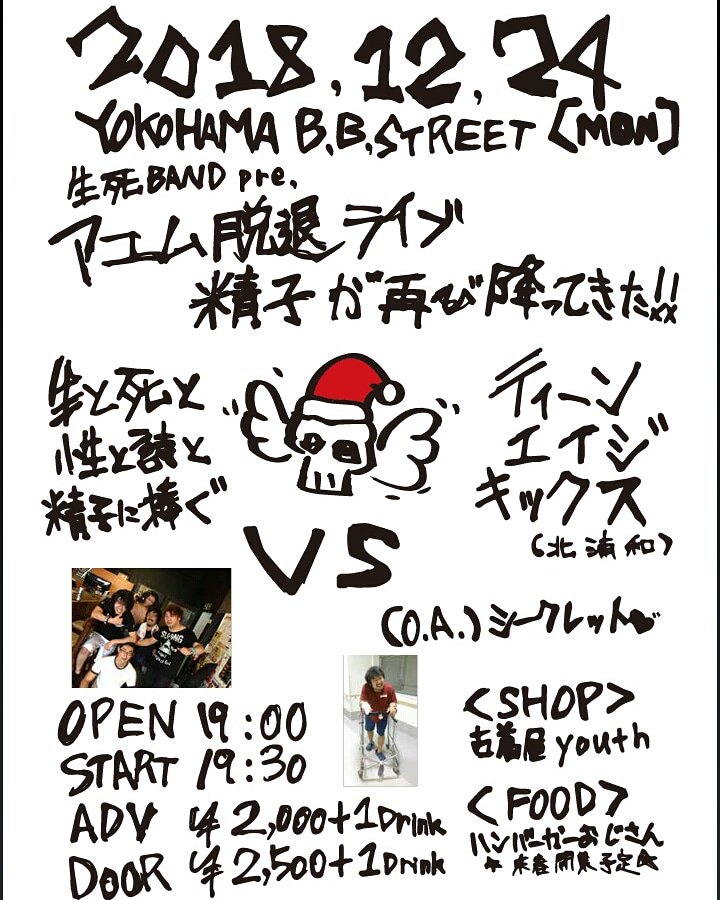 2018.12.24
YOKOHAMA B.B.STREET [MON]
生死BAND pre.
アエム脱退ライブ
精子が再び降ってきた!!
生と死と
性と
と
精子に捧ぐ
ティーン
エイジ
キックス
(北浦和)
VS
(O.A.)シークレット♥
OPEN 19:00
START 19:30
ADV ¥2,000+1Drink
DOOR ¥2,500+1Drink
<SHOP>
古着屋youth
<FOOD>
ハンバーガーおじさん
☆来春開業予定☆